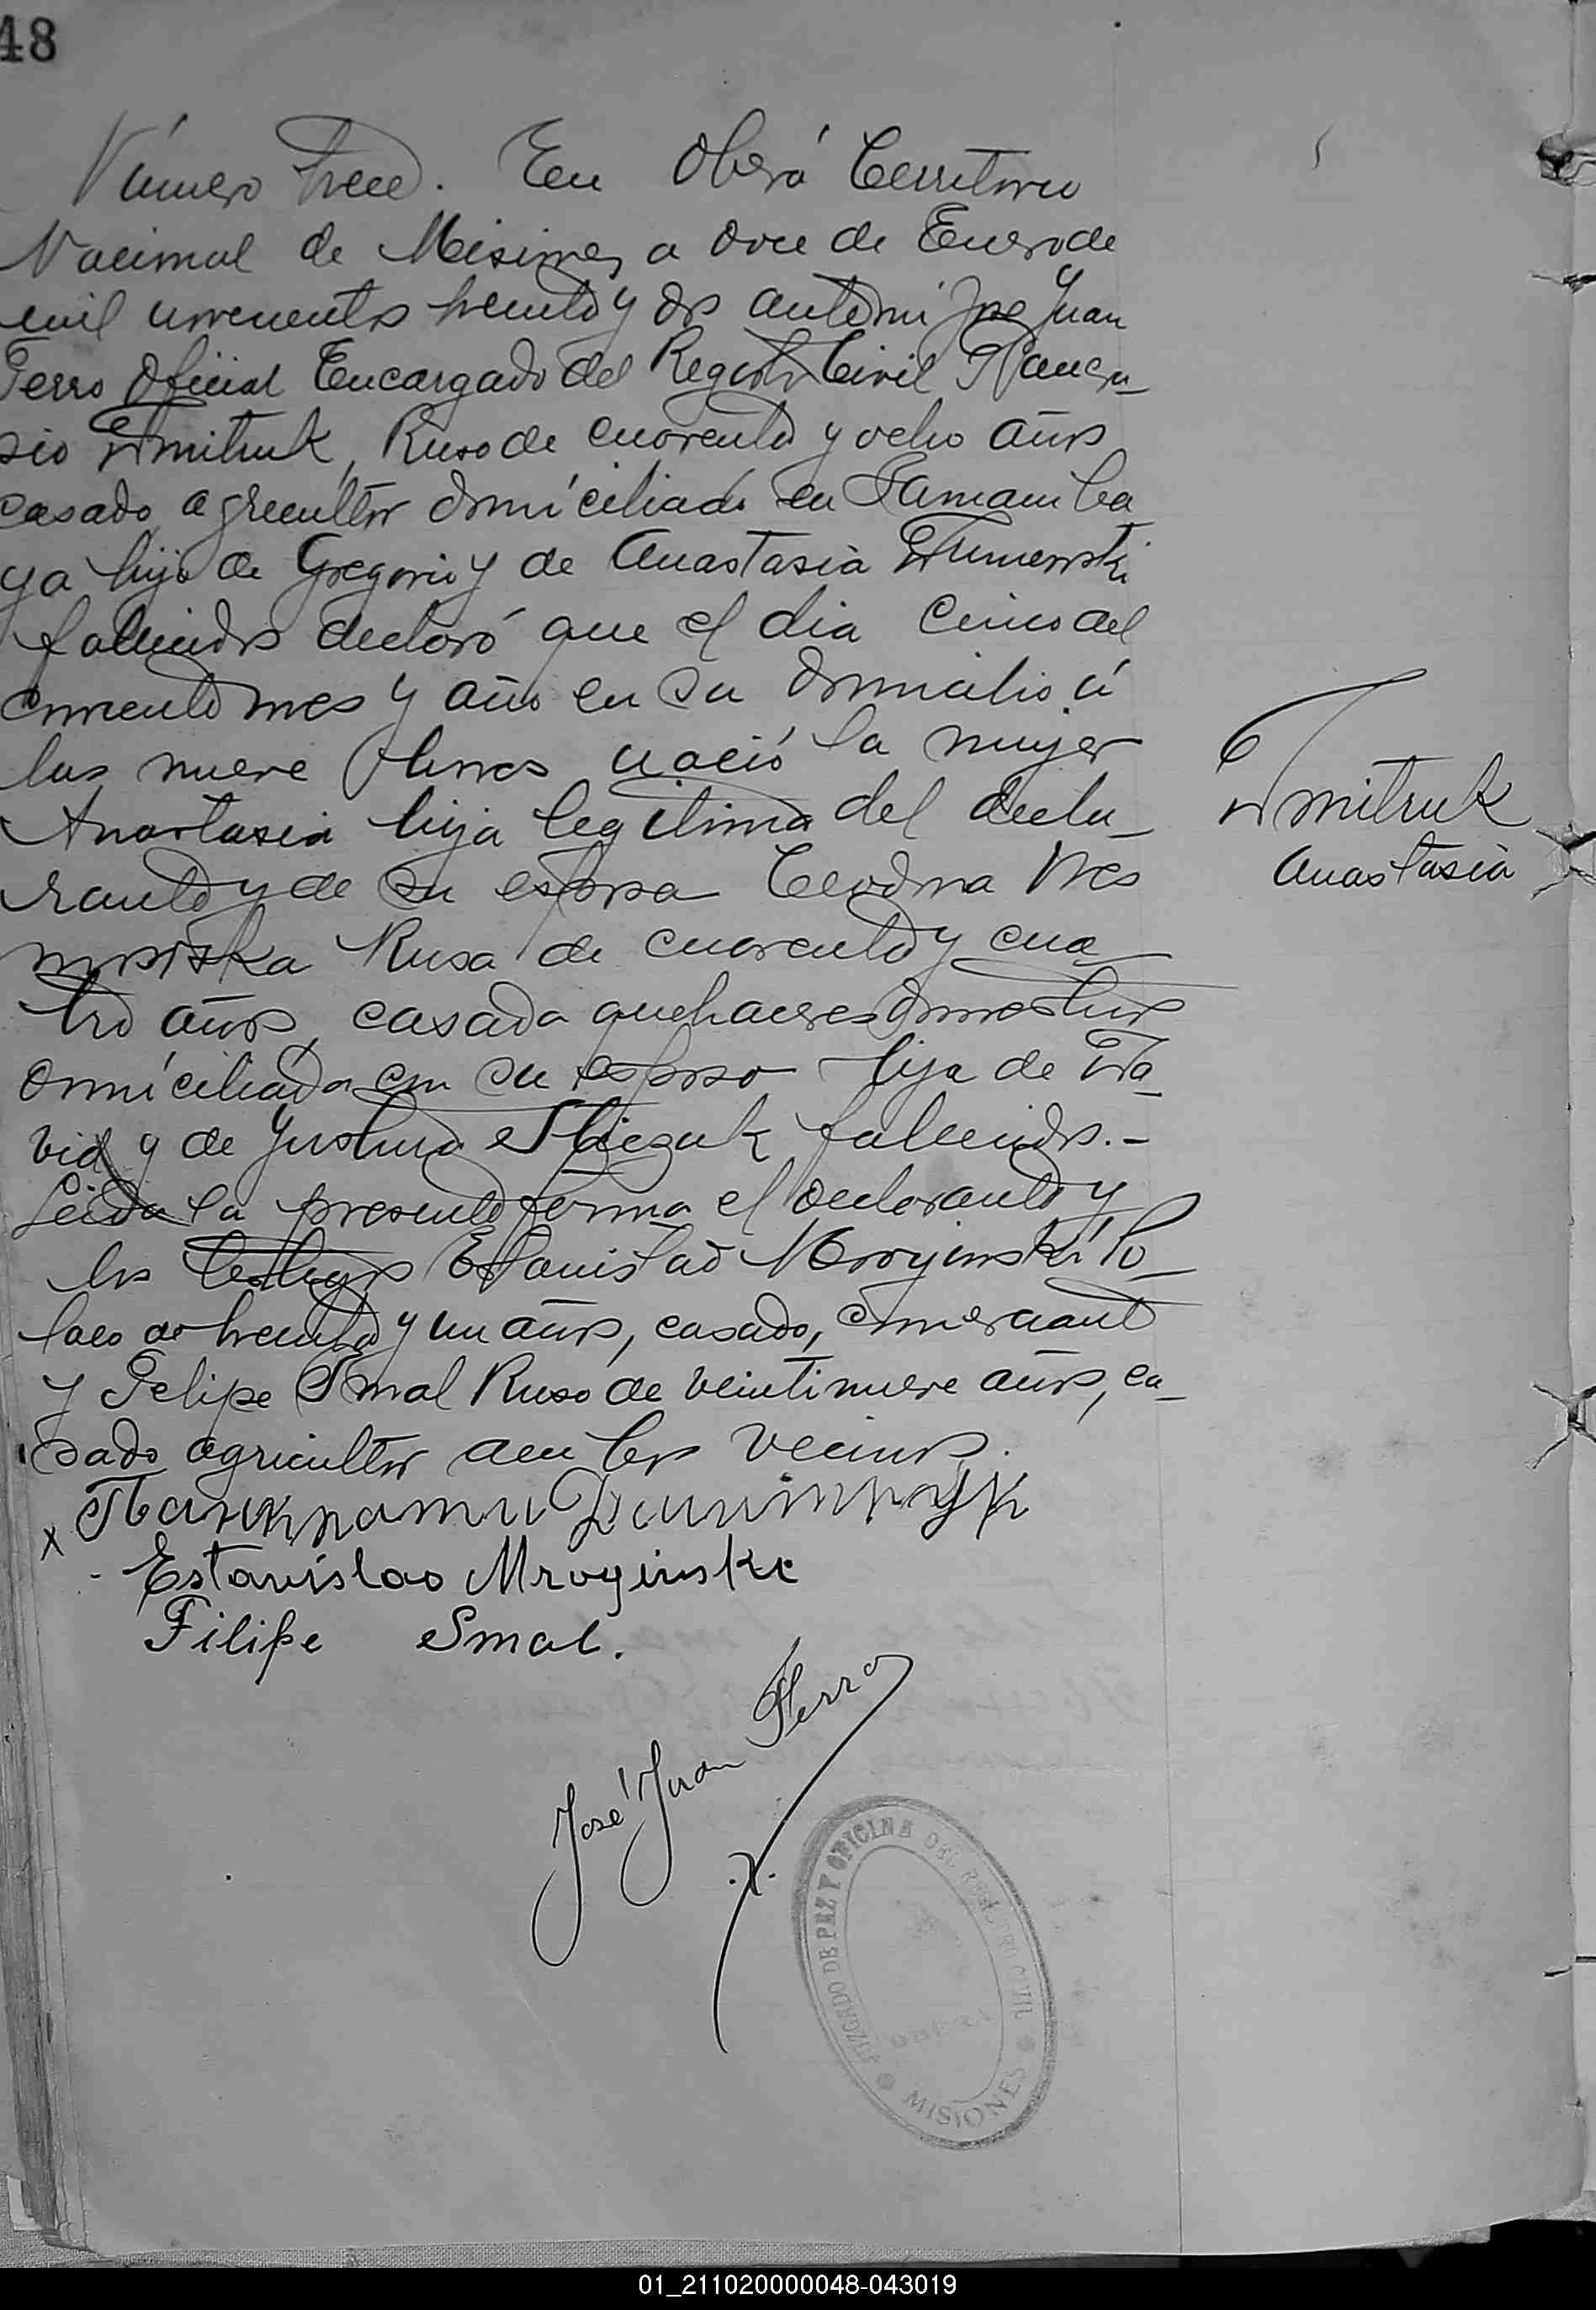 48
Número trece. En Oberá Territorio
Nacional de Misiones, a doce de Enero de
mil novecientos treinta y dos ante mi José Juan
Ferro Oficial Encargado del Registro Civil
Dmitruk, Ruso de cuarenta y ocho años
casado, agricultor domiciliado en Samamba
ya hijo de Gregorio y de Anastasia
fallecidos declaró que el dia cinco del
corriente mes y año en su domicilio á
las nueve horas nació la mujer
Anastasia hija legitima del decla-
rante y de su esposa Teodora
Rusa de cuarenta y cua-
tro años, casada quehaceres domesticos
domiciliada con su esposo hija de Da-
vid y de Justina fallecidos.-
Leida la presente forma el declarante y
los testigos Estanislao Mroginski Po-
laco de treinta y un años, casado, comerciante
y Felipe Smal Ruso de veintinueve años, ca-
sado agricultor ambos vecinos.
x
Estanislao Mroginski
Filipe Smal.
José Juan Ferro
Dmitruk
Anastasia
JUZGADO DE PAZ Y OFICINA DEL REGISTRO CIVIL
OBERA
MISIONES
01_211020000048-043019